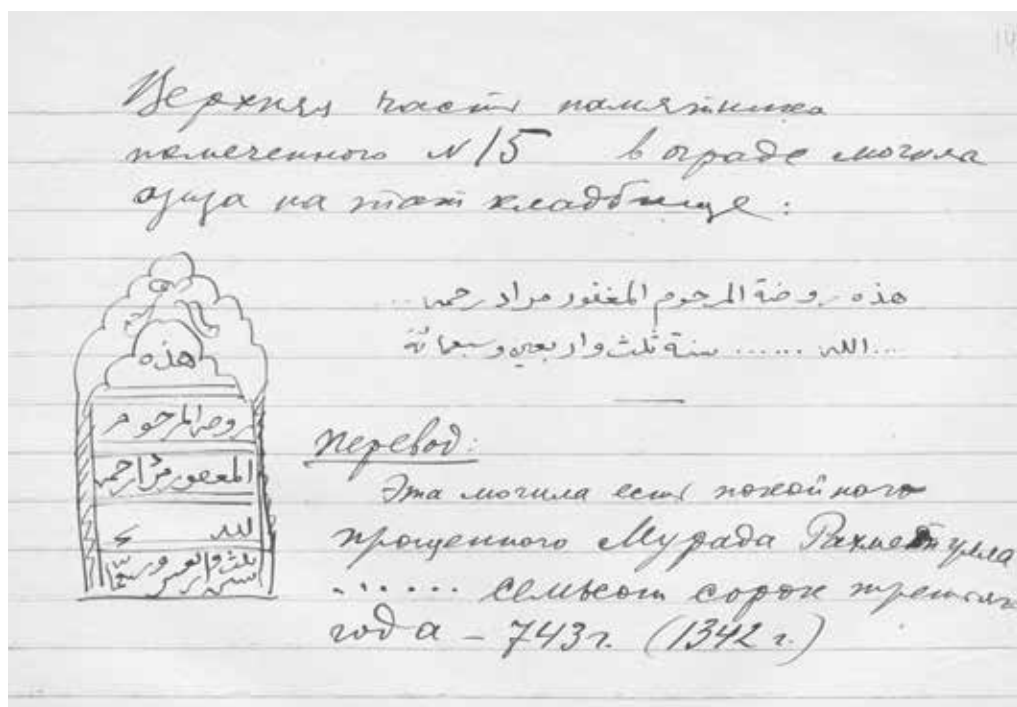 Верхняя часть памятника
помеченного N 15 в ограде могила
азиза на этом кладбище:
هذه روضة المرحوم المغفور مراد رحمه ...
...الله ...... سنة ثلث واربعين وسبعمائة
هذه
روضه المرحوم
المغفور مراد رحمه
الله
سنه ثلث واربعين وسبعمائة
Перевод:
Эта могила есть покойного
прощенного Мурада Рахметулла
...... семьсот сорок третьяго
года – 743 г. (1342 г.)